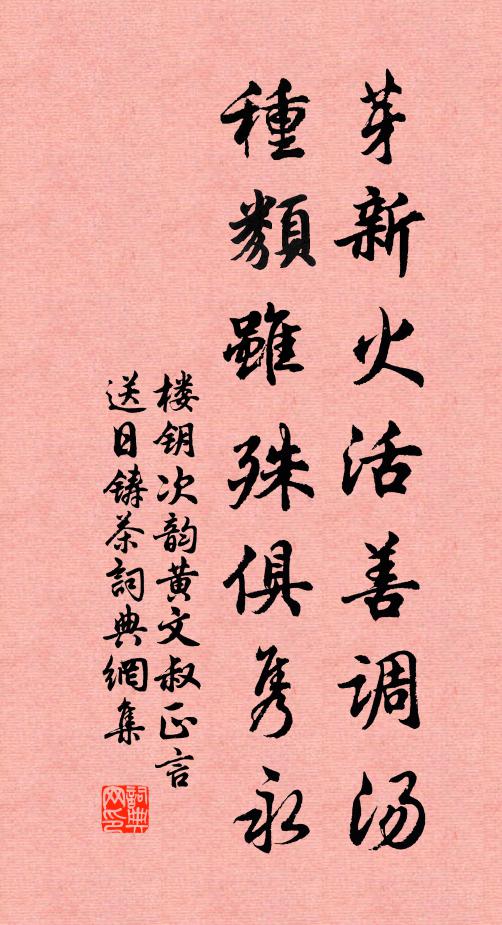 芽新火活善调汤
種類雖殊俱隽永
楼钥次韵黄文叔正言
送日铸茶詞典網集
詞典网印